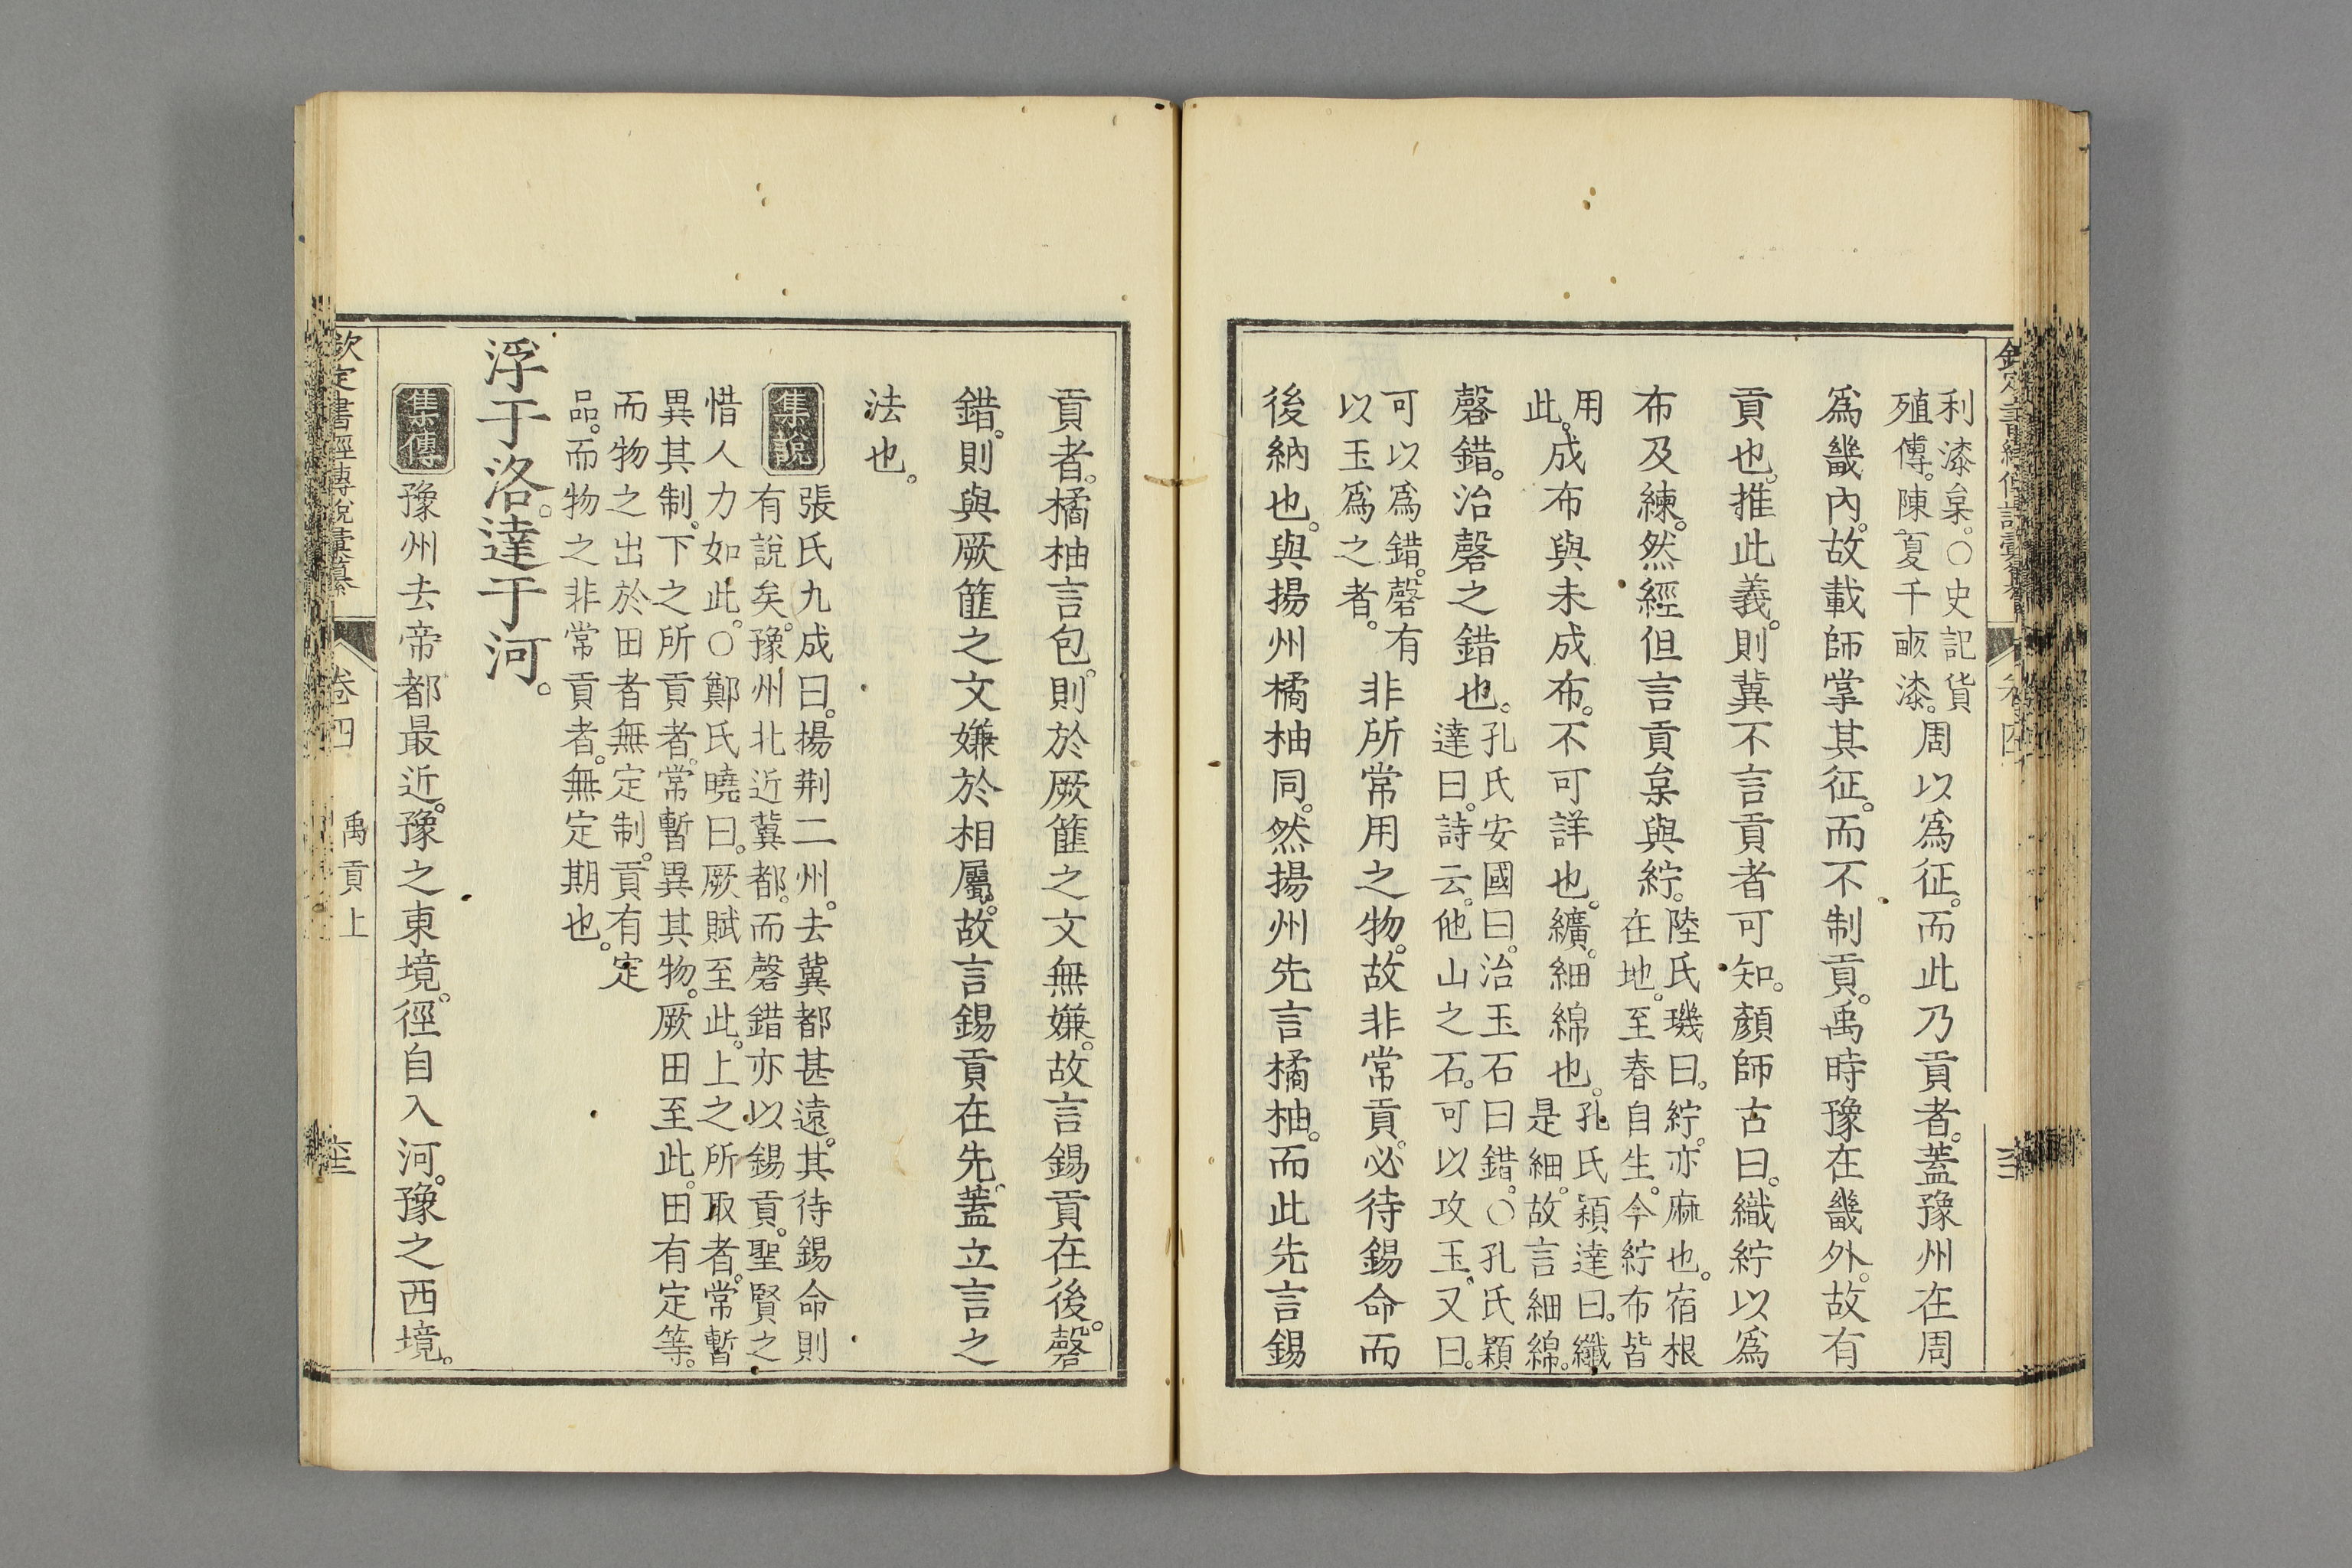 利漆枲。○史記貨
殖傳。陳夏千畝漆。
周以爲征。而此乃貢者。蓋豫州在周
爲畿內。故載師掌其征。而不制貢。禹時豫在畿外。故有
貢也。推此義。則冀不言貢者可知。顏師古曰。織紵以爲
布及練。然經但言貢枲與紵。
陸氏璣曰。紵。亦麻也。宿根
在地。至春自生。今紵布皆
用
此。
成布與未成布。不可詳也。纊。細綿也。
孔氏穎達曰。纖
是細。故言細綿。
磬錯。治磬之錯也。
孔氏安國曰。治玉石曰錯。○孔氏穎
達曰。詩云。他山之石。可以攻玉。又曰。
可以爲錯。磬有
以玉爲之者。
非所常用之物。故非常貢。必待錫命而
後納也。與揚州橘柚同。然揚州先言橘柚。而此先言錫
貢者。橘柚言包。則於厥篚之文無嫌。故言錫貢在後。磬
錯。則與厥篚之文嫌於相屬。故言錫貢在先。蓋立言之
法也。
集說
張氏九成曰。揚荆二州。去冀都甚遠。其待錫命則
有說矣。豫州北近冀都。而磬錯亦以錫貢。聖賢之
惜人力如此。○鄭氏曉曰。厥賦至此。上之所取者。常暫
異其制。下之所貢者。常暫異其物。厥田至此。田有定等。
而物之出於田者無定制。貢有定
品。而物之非常貢者。無定期也。
浮于洛。達于河。
集傳
豫州去帝都最近。豫之東境。徑自入河。豫之西境。
欽定書經傳說彙纂
卷四
禹貢上